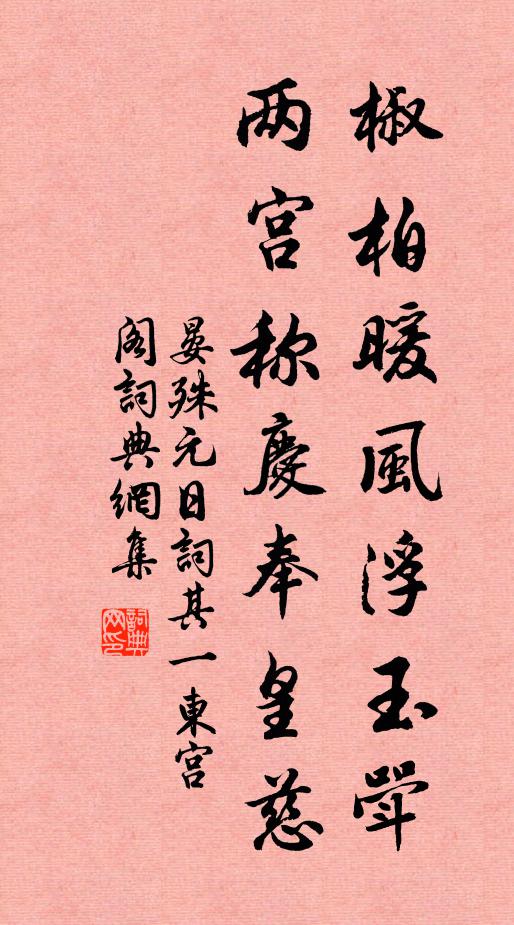 椒柏暖風浮玉斝
两宫称慶奉皇慈
晏殊元日詞其一東宫
阁詞典網集
詞典网印